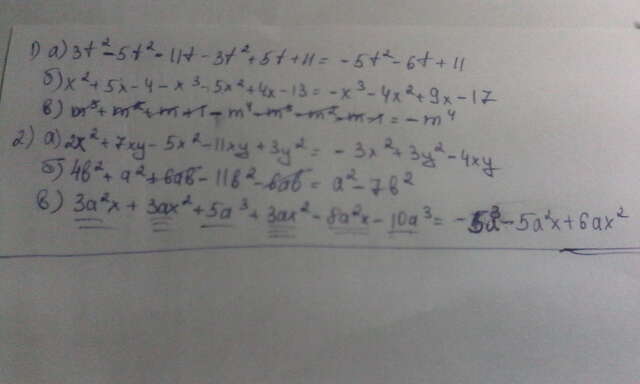 1) а) 3t² - 5t² - 11t - 3t² + 5t + 11 = - 5t² - 6t + 11
б) x² + 5x - 4 - x³ - 5x² + 4x - 13 = - x³ - 4x² + 9x - 17
в) m³ + m² + m + 1 - m⁴ - m³ - m² - m - 1 = - m⁴
2) а) 2x² + 7xy - 5x² - 11xy + 3y² = - 3x² + 3y² - 4xy
б) 4b² + a² + 6ab - 11b² - 6ab = a² - 7b²
в) 3a²x + 3ax² + 5a³ + 3ax² - 8a²x - 10a³ = - 5a³ - 5a²x + 6ax²